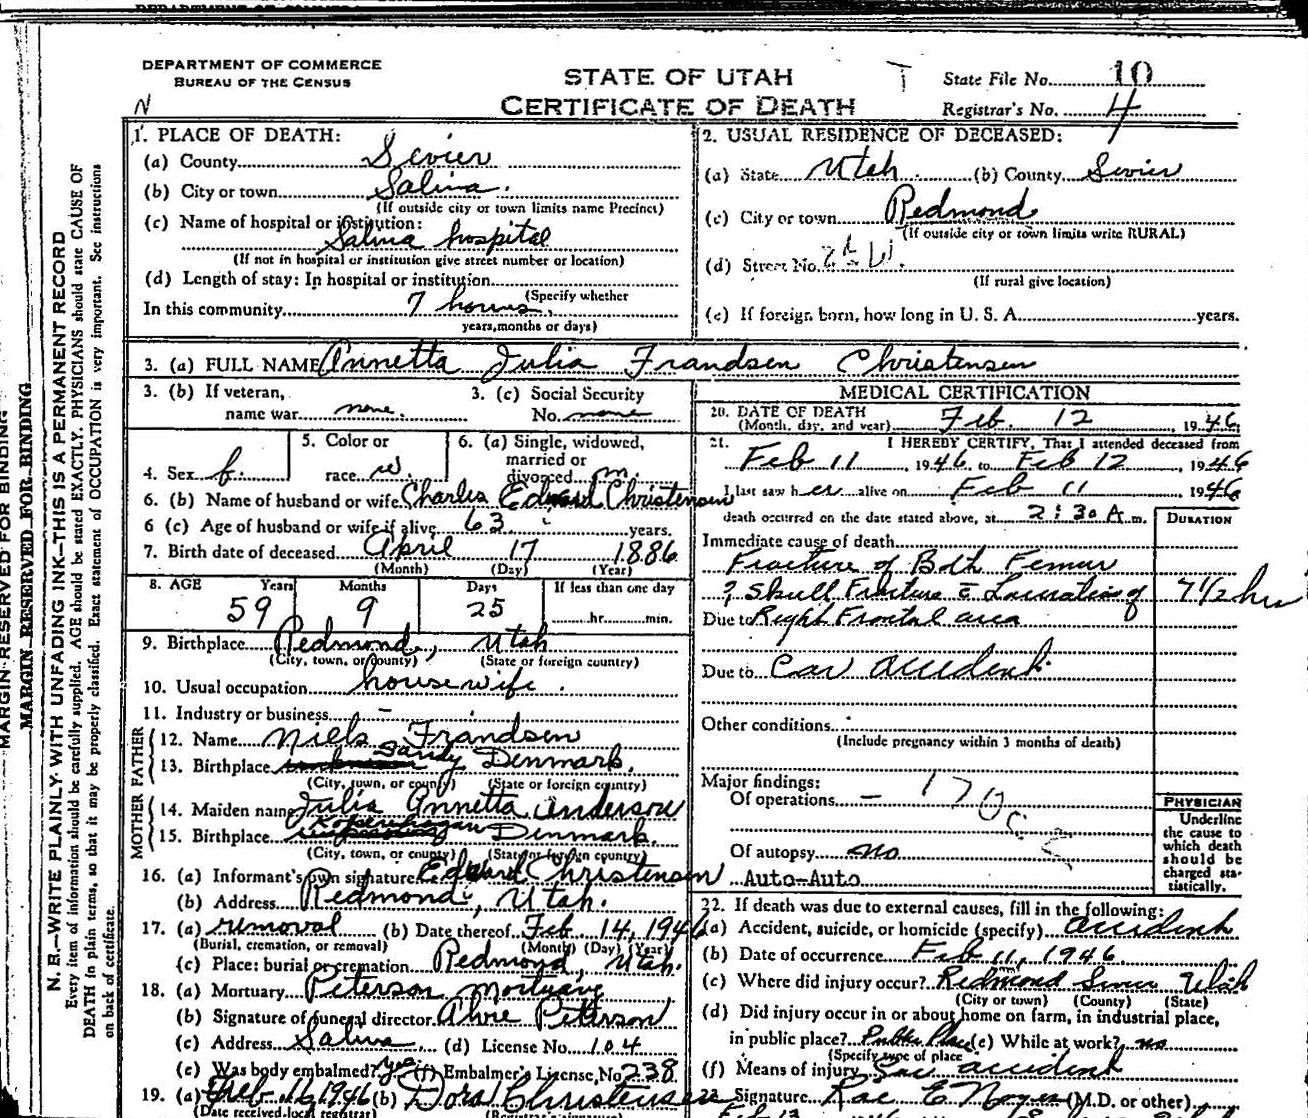 DEPARTMENT OF COMMERCE
BUREAU OF THE CENSUS
N
STATE OF UTAH
CERTIFICATE OF DEATH
T
State File No. 10
Registrar's No. 4
MARGIN RESERVED FOR BINDING
MARGIN RESERVED FOR BINDING
N. B.—WRITE PLAINLY WITH UNFADING INK—THIS IS A PERMANENT RECORD
Every item of information should be carefully supplied. AGE should be stated EXACTLY. PHYSICIANS should state CAUSE OF
DEATH in plain terms, so that it may be properly classified. Exact statement of OCCUPATION is very important. See instructions
on back of certificate.
1. PLACE OF DEATH:
(a) County Sevier
(b) City or town Salina.
(If outside city or town limits name Precinct)
(c) Name of hospital or institution:
Salina hospital
(If not in hospital or institution give street number or location)
(d) Length of stay: In hospital or institution
(Specify whether
In this community 7 hours.
years, months or days)
2. USUAL RESIDENCE OF DECEASED:
(a) State Utah (b) County Sevier
(c) City or town Redmond
(If outside city or town limits write RURAL)
(d) Street No. W.
(If rural give location)
(e) If foreign born, how long in U. S. A. years.
3. (a) FULL NAME Annetta Julia Frandsen Christensen
3. (b) If veteran, name war none.
3. (c) Social Security No. none
4. Sex f.
5. Color or race w.
6. (a) Single, widowed, married or divorced m.
6. (b) Name of husband or wife Charles Edward Christensen
6 (c) Age of husband or wife if alive 63 years.
7. Birth date of deceased April 17 1886
(Month) (Day) (Year)
8. AGE Years Months Days If less than one day
59 9 25 hr. min.
9. Birthplace Redmond, Utah
(City, town, or county) (State or foreign country)
10. Usual occupation housewife.
11. Industry or business –
FATHER
12. Name Niels Frandsen
13. Birthplace Sandy Denmark.
(City, town, or county) (State or foreign country)
MOTHER
14. Maiden name Julia Annetta Anderson
15. Birthplace Kopenhagen Denmark.
(City, town, or county) (State or foreign country)
16. (a) Informant's own signature Edward Christensen
(b) Address Redmond, Utah.
17. (a) removal (b) Date thereof Feb 14, 1946
(Burial, cremation, or removal) (Month) (Day) (Year)
(c) Place: burial or cremation Redmond, Utah.
18. (a) Mortuary Peterson Mortuary
(b) Signature of funeral director Peterson
(c) Address Salina, (d) License No. 104
(e) Was body embalmed? yes (f) Embalmer's License, No 238
19. (a) Feb 16, 1946 (b) Dora Christensen
(Date received local registrar)
MEDICAL CERTIFICATION
20. DATE OF DEATH
(Month, day, and year) Feb. 12, 1946
21. I HEREBY CERTIFY, That I attended deceased from
Feb 11, 1946, to Feb 12, 1946
I last saw her alive on Feb 11 1946
death occurred on the date stated above, at 2:30 A.m.
DURATION
Immediate cause of death
Fracture of Both Femur
& Skull Fracture c Laceration of 7 1/2 hrs
Due to Right Frontal area
Due to Car accident.
Other conditions
(Include pregnancy within 3 months of death)
Major findings:
Of operations –
Of autopsy no
Auto-Auto
PHYSICIAN
Underline
the cause to
which death
should be
charged sta-
tistically.
22. If death was due to external causes, fill in the following:
(a) Accident, suicide, or homicide (specify) accident
(b) Date of occurrence Feb 11, 1946.
(c) Where did injury occur? Redmond Sevier Utah
(City or town) (County) (State)
(d) Did injury occur in or about home on farm, in industrial place,
in public place? Public Place (e) While at work? no
(Specify type of place
(f) Means of injury Car accident
23. Signature Rae E Noyes (M.D. or other)